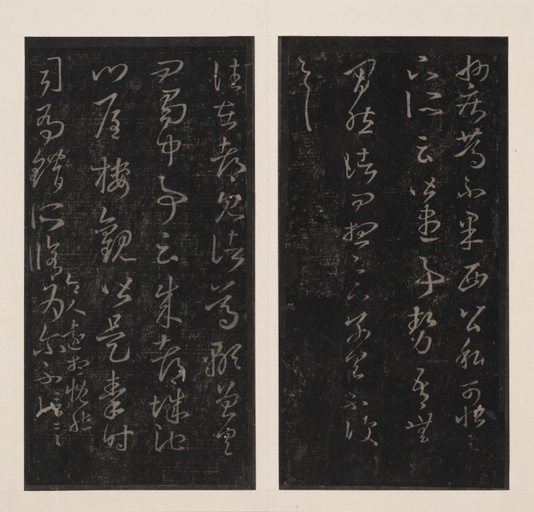 州疾篤不果西公私可恨足
下所云皆盡事勢吾無
間然諸問想足下別具不復
一一
往在都見諸葛顒曾具
問蜀中事云成都城池
門屋樓觀皆是秦時
司馬錯所脩令人遠想慨然
為爾不信一一